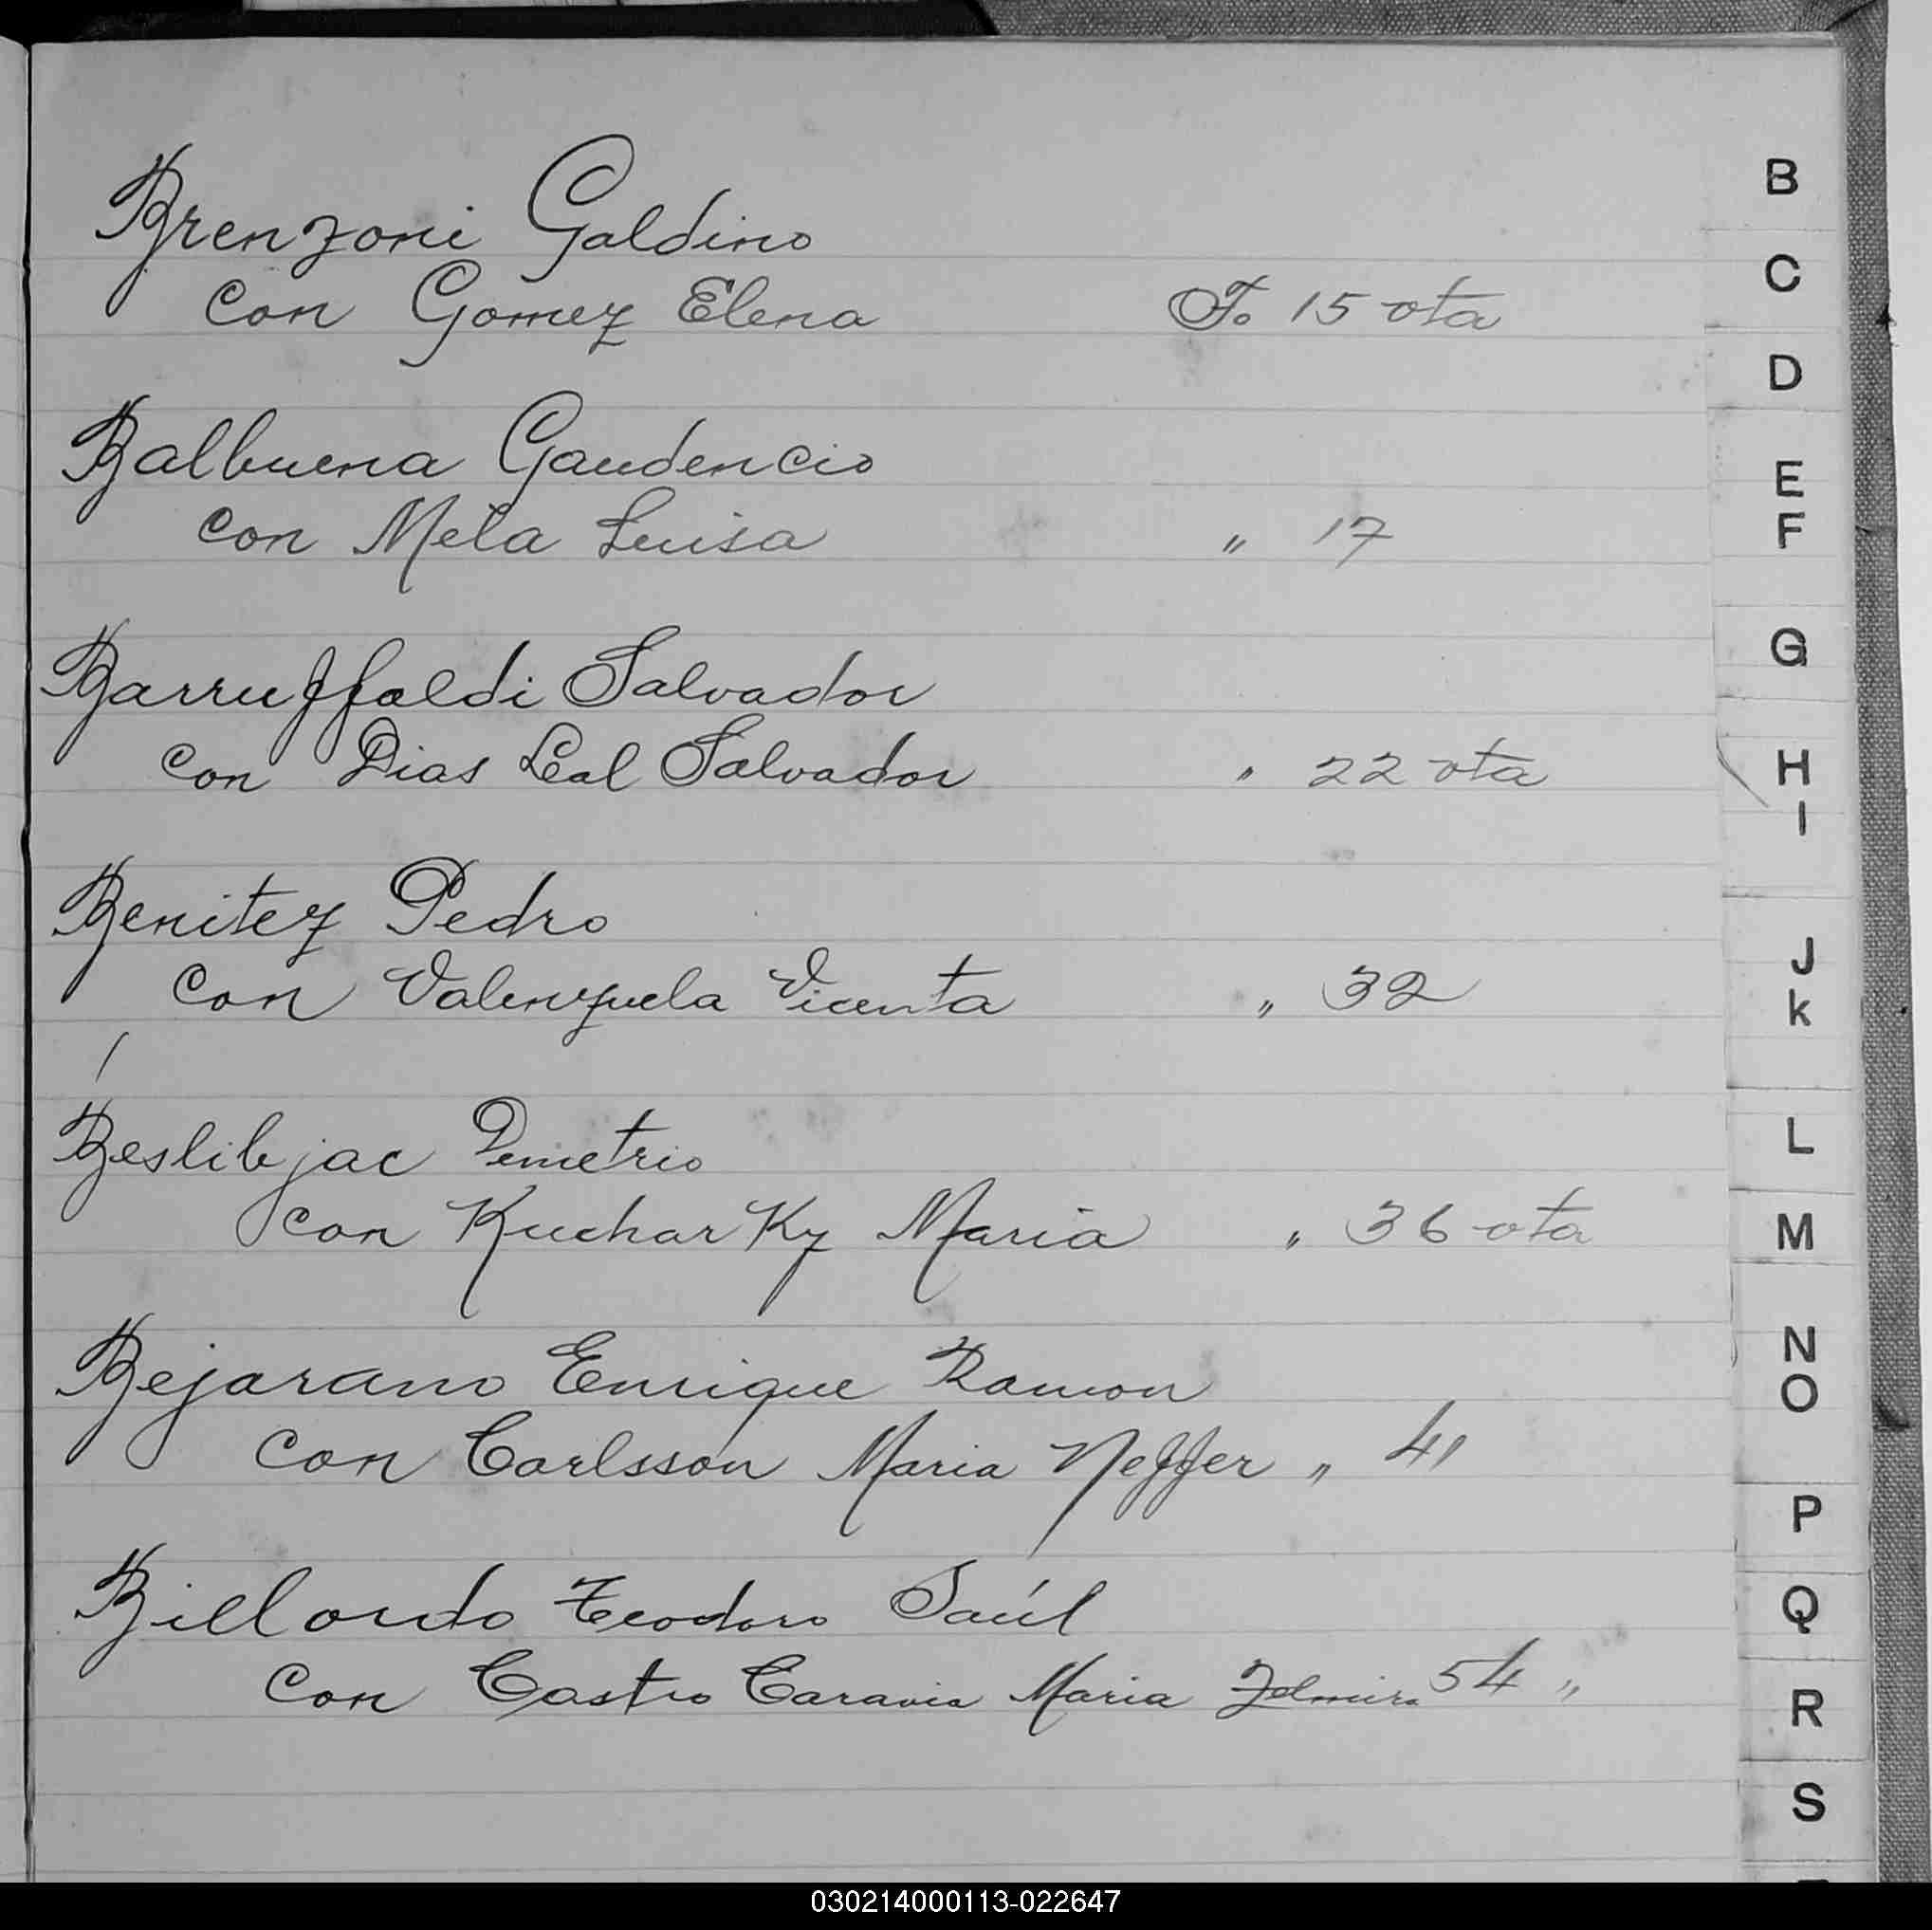 Brenzoni Galdino
con Gomez Elena Fo 15 vta
Balbuena Gaudencio
con Meta Luisa " 17
Barruffaldi Salvador
con Dias Leal Salvador " 22 vta
Benitez Pedro
con Valenzuela Vicenta " 32
Beslibjac Demetrio
con Kucharky Maria " 36 vta
Bejarano Enrique Ramon
con Carlsson Maria Neffer " 41
Billordo Teodoro Saúl
con Castro Caravia Maria Zelmira 54 "
B
C
D
E
F
G
H
I
J
K
L
M
N
O
P
Q
R
S
030214000113-022647